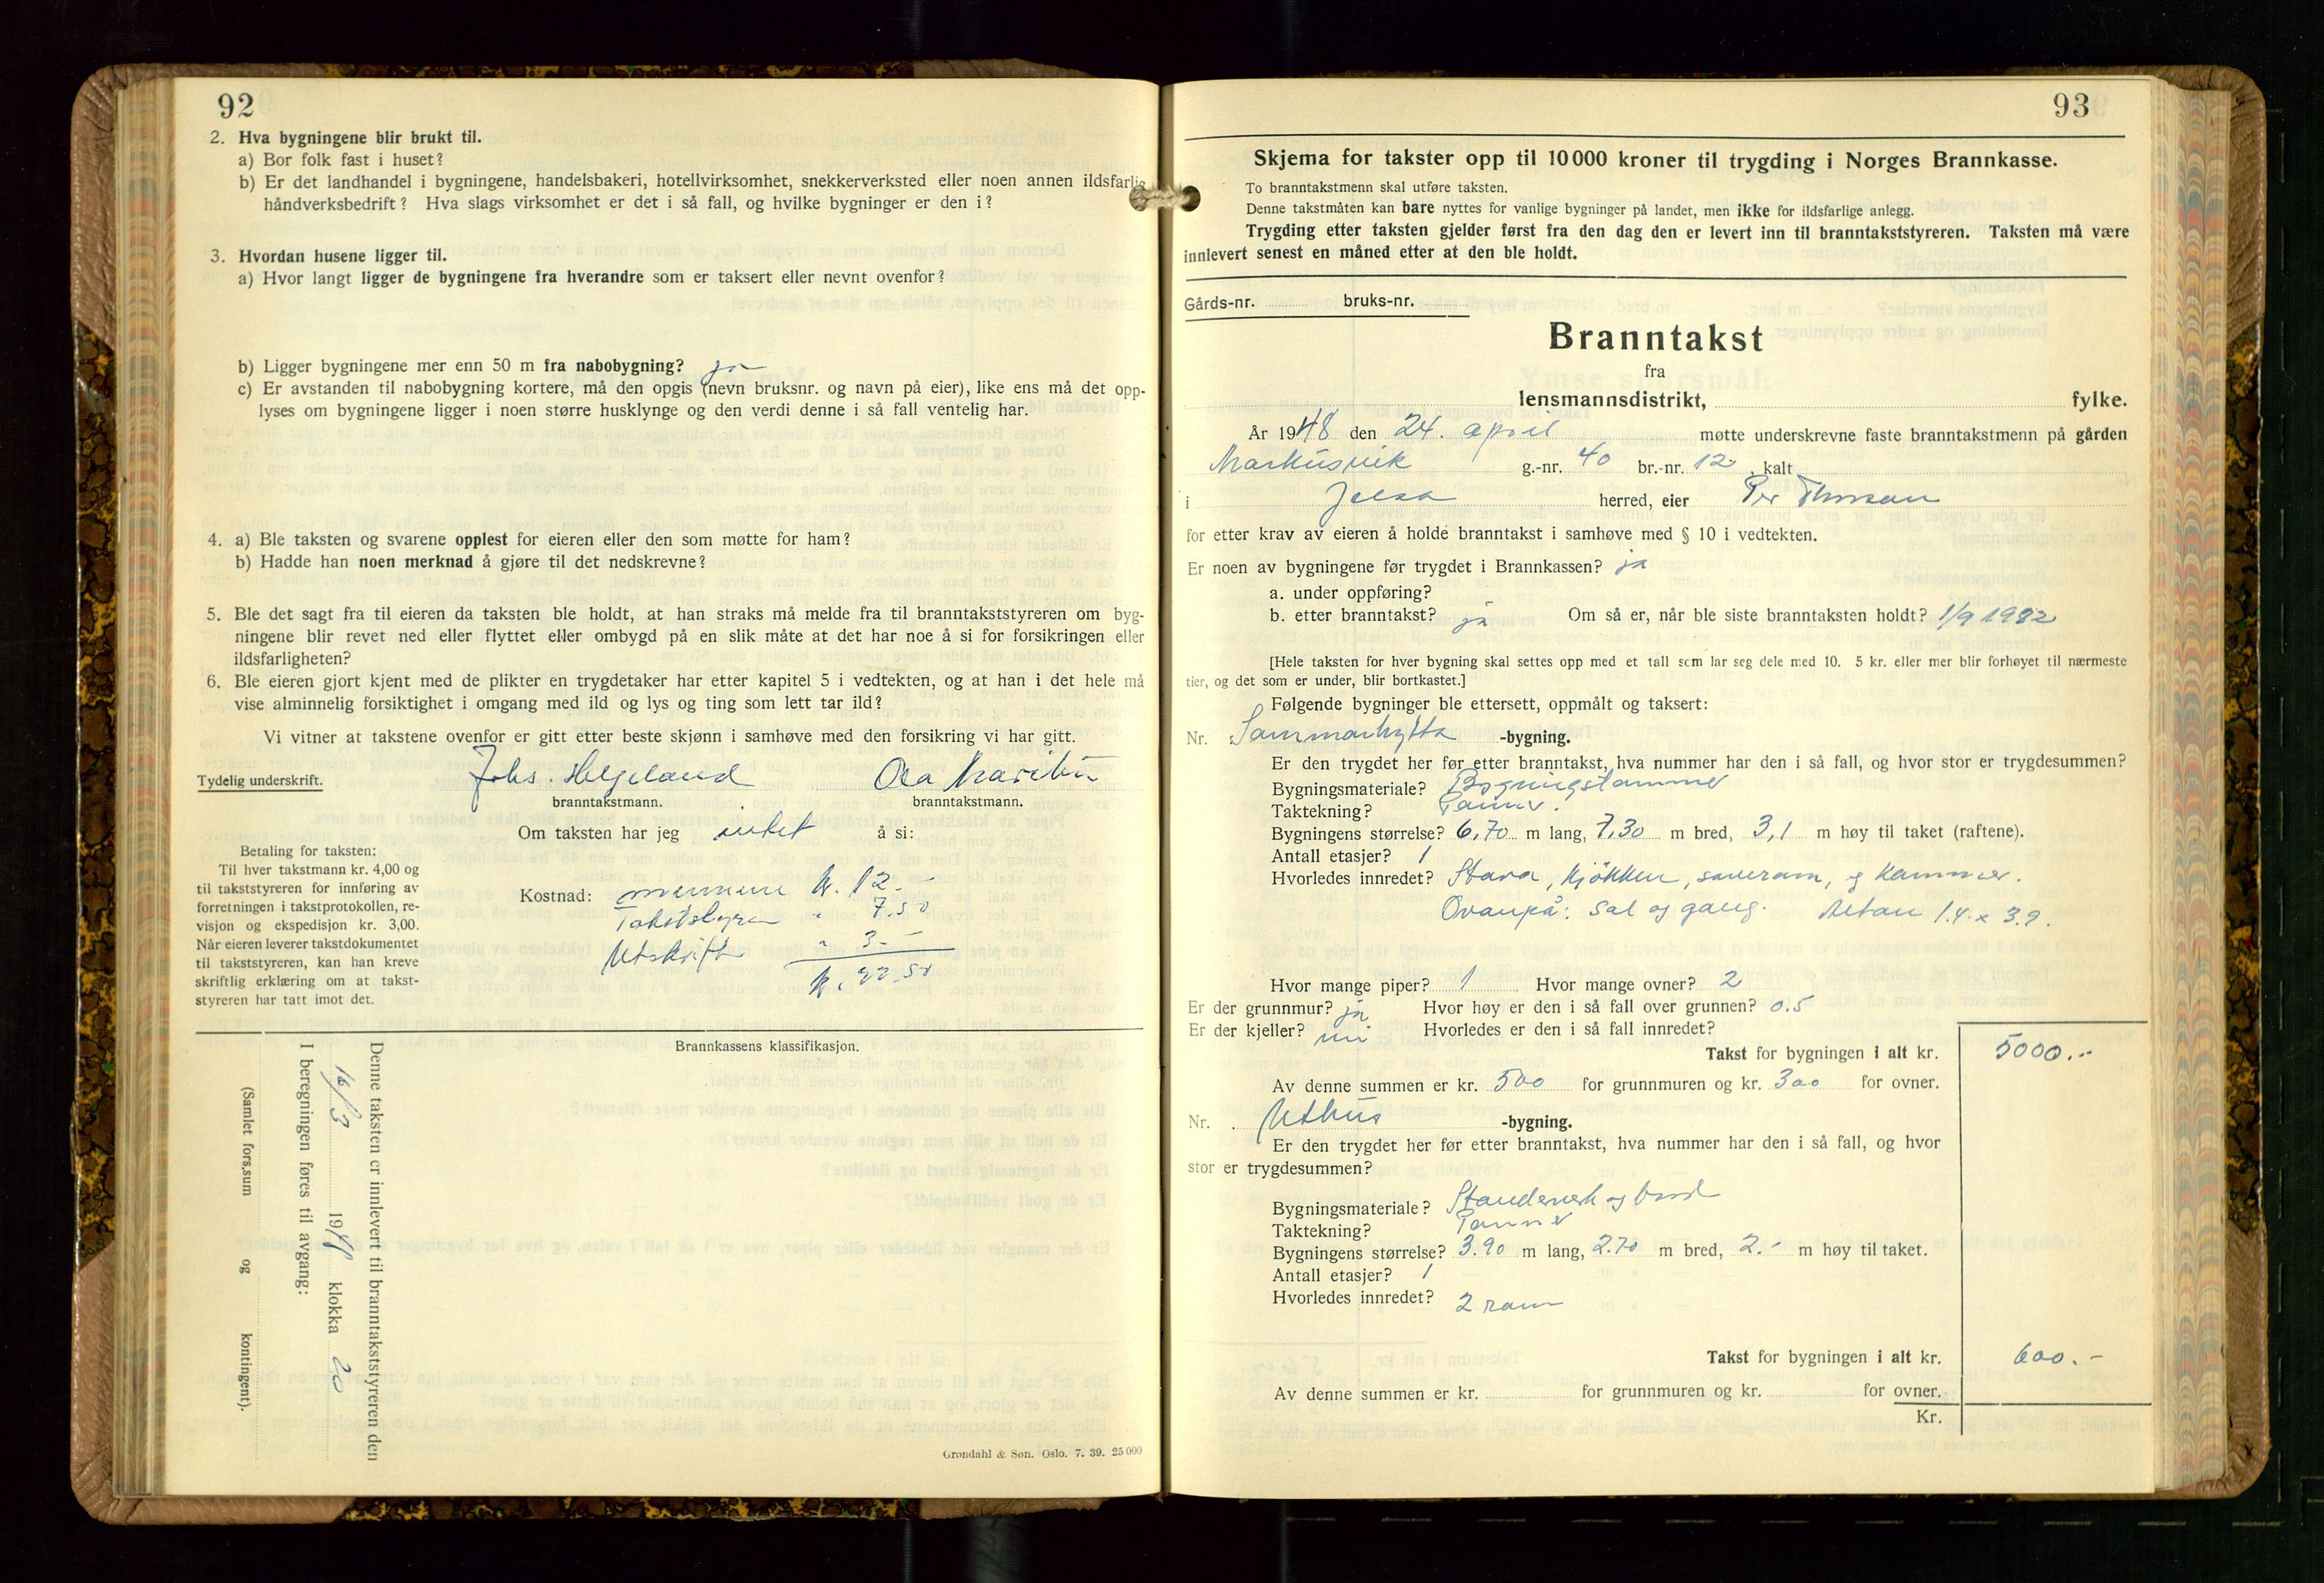 92
2. Hva bygningene blir brukt til.
a) Bor folk fast i huset?
b) Er det landhandel i bygningene, handelsbakeri, hotellvirksomhet, snekkerverksted eller noen annen ildsfarlig
håndverksbedrift? Hva slags virksomhet er det i så fall, og hvilke bygninger er den i?
3. Hvordan husene ligger til.
a) Hvor langt ligger de bygningene fra hverandre som er taksert eller nevnt ovenfor?
b) Ligger bygningene mer enn 50 m fra nabobygning? ja
c) Er avstanden til nabobygning kortere, må den opgis (nevn bruksnr. og navn på eier), like ens må det opp-
lyses om bygningene ligger i noen større husklynge og den verdi denne i så fall ventelig har.
4. a) Ble taksten og svarene opplest for eieren eller den som møtte for ham?
b) Hadde han noen merknad å gjøre til det nedskrevne?
5. Ble det sagt fra til eieren da taksten ble holdt, at han straks må melde fra til branntakststyreren om byg-
ningene blir revet ned eller flyttet eller ombygd på en slik måte at det har noe å si for forsikringen eller
ildsfarligheten?
6. Ble eieren gjort kjent med de plikter en trygdetaker har etter kapitel 5 i vedtekten, og at han i det hele må
vise alminnelig forsiktighet i omgang med ild og lys og ting som lett tar ild?
Vi vitner at takstene ovenfor er gitt etter beste skjønn i samhøve med den forsikring vi har gitt.
Tydelig underskrift. Johs. Helgeland Ola
branntakstmann. branntakstmann.
Om taksten har jeg intet å si:
Betaling for taksten:
Til hver takstmann kr. 4,00 og
til takststyreren for innføring av
forretningen i takstprotokollen, re-
visjon og ekspedisjon kr. 3,00.
Når eieren leverer takstdokumentet
til takststyreren, kan han kreve
skriftlig erklæring om at takst-
styreren har tatt imot det.
Kostnad: mennene kr. 12.-
Takststyrer " 7.50
Utskrift " 3.-
kr. 22.50
Brannkassens klassifikasjon.
Denne taksten er innlevert til branntakststyreren den
16/3 19 klokka 20
I beregningen føres til avgang:
(Samlet fors.sum og kontingent).
Grøndahl & Søn. Oslo. 7. 39. 25 000
93
Skjema for takster opp til 10 000 kroner til trygding i Norges Brannkasse.
To branntakstmenn skal utføre taksten.
Denne takstmåten kan bare nyttes for vanlige bygninger på landet, men ikke for ildsfarlige anlegg.
Trygding etter taksten gjelder først fra den dag den er levert inn til branntakststyreren. Taksten må være
innlevert senest en måned etter at den ble holdt.
Gårds-nr. bruks-nr.
Branntakst
fra
lensmannsdistrikt, fylke.
År 1948 den 24. april møtte underskrevne faste branntakstmenn på gården
Markusvik g.-nr. 40 br.-nr. 12 kalt
i Jelsa herred, eier Per Thorsen
for etter krav av eieren å holde branntakst i samhøve med § 10 i vedtekten.
Er noen av bygningene før trygdet i Brannkassen? ja
a. under oppføring?
b. etter branntakst? ja Om så er, når ble siste branntaksten holdt? 1/9 1932
[Hele taksten for hver bygning skal settes opp med et tall som lar seg dele med 10. 5 kr. eller mer blir forhøyet til nærmeste
tier, og det som er under, blir bortkastet.]
Følgende bygninger ble ettersett, oppmålt og taksert:
Nr. Sommarhytta -bygning.
Er den trygdet her før etter branntakst, hva nummer har den i så fall, og hvor stor er trygdesummen?
Bygningsmateriale? Bygningstømmer
Taktekning? Panner.
Bygningens størrelse? 6,70 m lang, 7,30 m bred, 3,1 m høy til taket (raftene).
Antall etasjer? 1
Hvorledes innredet? Stova, kjökken, soverom, og kammer.
Ovanpå: sal og gang. Altan 1.4 x 3.9.
Hvor mange piper? 1 Hvor mange ovner? 2
Er der grunnmur? ja Hvor høy er den i så fall over grunnen? 0.5
Er der kjeller? nei Hvorledes er den i så fall innredet?
Takst for bygningen i alt kr. 5000.-
Av denne summen er kr. 500 for grunnmuren og kr. 300 for ovner.
Nr. Uthus -bygning.
Er den trygdet her før etter branntakst, hva nummer har den i så fall, og hvor
stor er trygdesummen?
Bygningsmateriale? Standerverk og bord
Taktekning? Panner
Bygningens størrelse? 3.90 m lang, 2.70 m bred, 2.- m høy til taket.
Antall etasjer? 1
Hvorledes innredet? 2 rom
Takst for bygningen i alt kr. 600.-
Av denne summen er kr. for grunnmuren og kr. for ovner.
Kr.